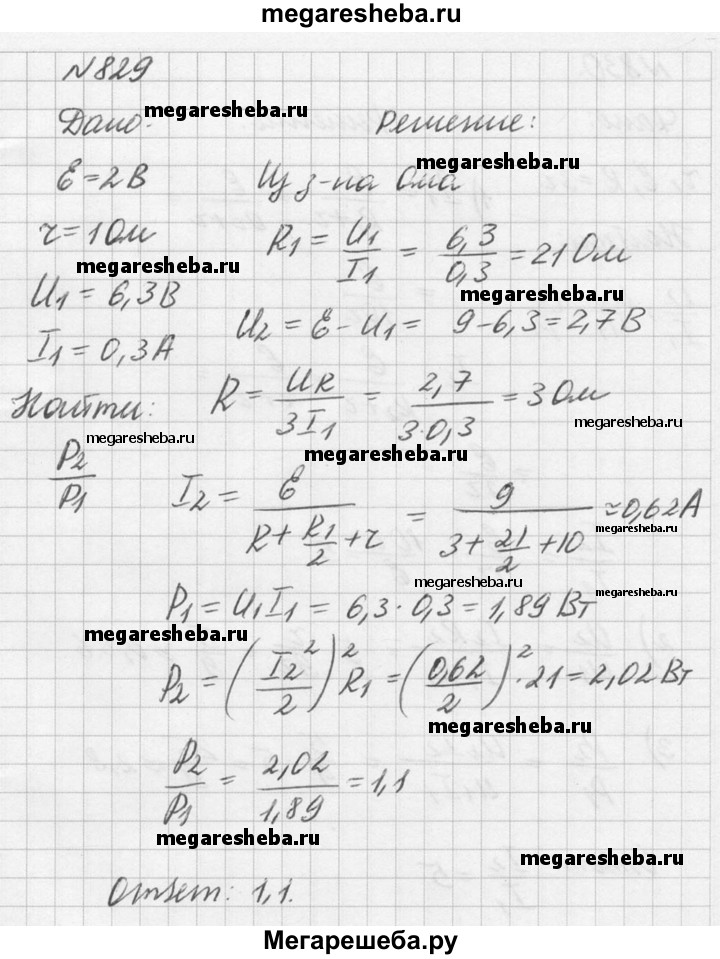 megaresheba.ru
№829
Дано: Решение:
megaresheba.ru
megaresheba.ru
Ɛ = 2 В Из з-на Ома
r = 1 Ом R1 = U1/I1 = 6,3/0,3 = 21 Ом
megaresheba.ru
megaresheba.ru
U1 = 6,3 В U2 = Ɛ - U1 = 9 - 6,3 = 2,7 В
I1 = 0,3 А
Найти: R = UR/3I1 = 2,7/3·0,3 = 3 Ом
megaresheba.ru
megaresheba.ru
P2/P1 I2 = Ɛ/(R + R1/2 + r) = 9/(3 + 21/2 + 10) ≈ 0,62 А
megaresheba.ru
megaresheba.ru
megaresheba.ru
P1 = U1 I1 = 6,3 · 0,3 = 1,89 Вт
megaresheba.ru
P2 = (I2²/2)² R1 = (0,62/2)² · 21 = 2,02 Вт
megaresheba.ru
P2/P1 = 2,02/1,89 = 1,1
megaresheba.ru
megaresheba.ru
Ответ: 1,1.
Мегарешеба.ру